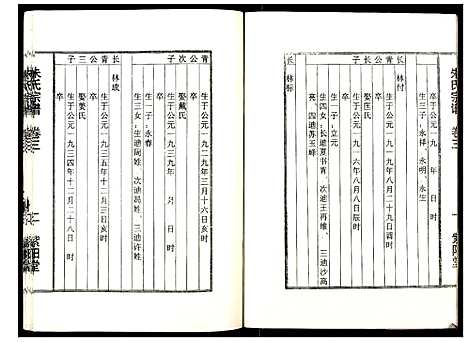 朱氏宗谱 卷三
紫阳堂
长 林付
生于公元一九 年 月 日 时
卒
生三子：永祥、永明、永生
青公子
生于公元一九 年八月二十九日酉时
卒
娶匡氏
生于公元一九三六年八月八日辰时
卒
生一子：立元
生四女：长适夏书青 次适王再雄 三适沙高亮 四适苏玉峰
长 林标
青公次子
生于公元一九三九年三月十六日亥时
卒
娶戴氏
生于公元一九三九年 月 日 时
卒
生一子：永春
生三女：生适周姓 次适冯姓 三适许姓
长 林成
青公三子
生于公元一九三五年十二月三日亥时
卒
娶姜氏
生于公元一九三四年十二月二十八日时
卒
朱氏宗谱 卷三
紫阳堂